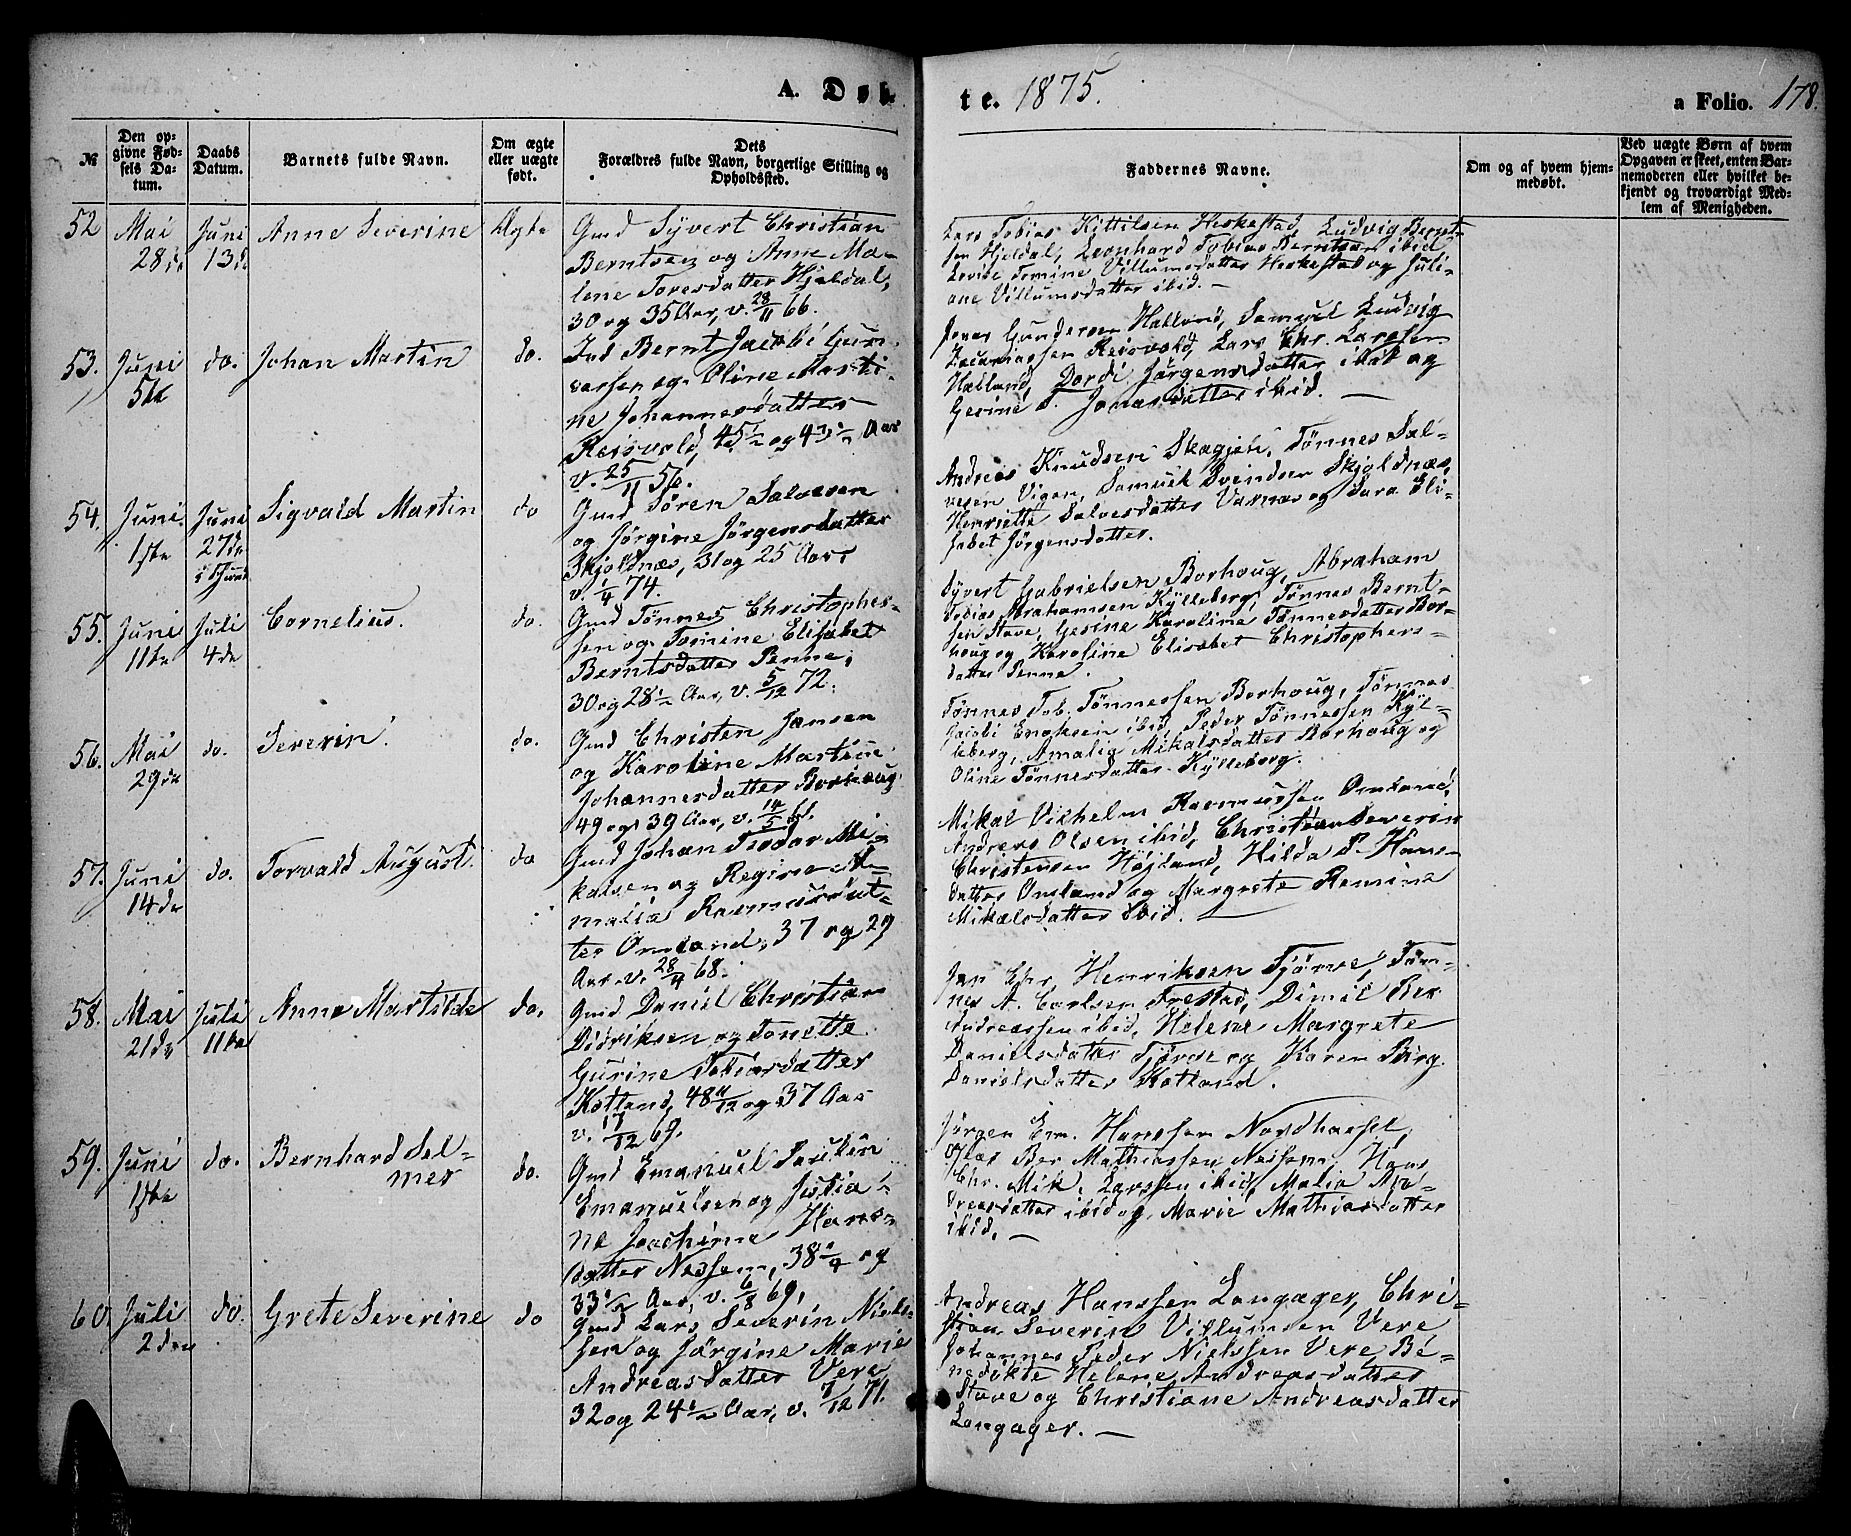 A. Døb-
te. 1875.
a Folio. 178.
№
Den op-
givne Fød-
sels Da-
tum.
Daabs
Datum.
Barnets fulde Navn.
Om ægte
eller uægte
født.
Dets
Forældres fulde Navn, borgerlige Stilling og
Opholdssted.
Faddernes Navne.
Om og af hvem hjem-
medøbt.
Ved uægte Børn af hvem
Opgaven er skeet, enten Bar-
nemoderen eller hvilket be-
kjendt og troværdigt Med-
lem af Menigheden.
52 Mai
28de
Juni
13de
Anne Severine
Ægte
Gmd Syvert Christian
Berntsen og Anne Ma-
lene Toresdatter Hjeldal,
30 og 35 Aar, v. 28/11 66.
Lars Tobias Kittilsen Heskestad, Ludvig Bernt-
sen Hjeldal, Leonhard Tobias Berntsen ibid
Lovise Tomine Villumsdatter Heskestad og Juli-
ane Villumsdatter ibid. —
53. Juni
5te
do.
Johan Martin
do.
Ind Bernt Jacobi Gun-
varsen og Oline Marti-
ne Johannesdatter
Reisvold, 45½ og 43½ Aar
v. 25/11 56.
Jonas Gundersen Hatland, Samuel Ludvig
Zacariassen Reisvold, Lars Chr. Larssen
Hatland, Dordi Jørgensdatter ibid og
Gesine T. Jonasdatter ibid. —
54. Juni
1ste
Juni
27de
Sigvald Martin
do
Gmd Sören Salvesen
og Jörgine Jörgensdatter
Skjoldnæs, 31 og 25 Aar
v. 1/4 74.
Andreas Knudsen Skagjen, Tönnes Sal-
vesen Vigan, Samuel Svendsen Skjoldnæs,
Henriette Salvesdatter Varnæs og Sara Eli-
sabet Jörgensdatter.
55. Juni
11te
Juli
4de
Cornelius.
do.
Gmd Tönnes Christopher-
sen og Tomine Elisabet
Berntsdatter Penne,
30 og 28½ Aar, v. 5/12 72.
Syvert Gabrielsen Borhoug, Abraham
Tobias Abrahamsen Kylleberg, Tönnes Bernt-
sen Stave, Gesine Karoline Tönnesdatter Bor-
houg og Karoline Elisabet Christophers-
datter Penne.
56. Mai
29de
do.
Severin.
do.
Gmd Christen Jansen
og Karoline Martine
Johannesdatter Borhoug
49 og 39 Aar, v. 14/5 61.
Tönnes Tob. Tönnessen Borhoug, Tönnes
Jacobi Enoksen ibid, Peder Tönnessen Kyl-
leberg, Amalia Mikalsdatter Borhoug og
Oline Tönnesdatter Kylleberg.
57. Juni
14de
do.
Torvald August.
do
Gmd Johan Teodor Mi-
kalsen og Regine A-
malia Rasmusdat-
ter Omland, 37 og 29
Aar. v. 28/4 68.
Mikal Vilhelm Rasmussen Omland,
Andreas Olsen ibid, Christian Severin
Christensen Höjland, Hilda P. Hans-
datter Omland og Margrete Remine
Mikalsdatter ibid.
58. Mai
21de
Juli
11te
Anne Martilde
do.
Gmd Daniel Christian
Didriksen og Tonette
Gurine Tobiasdatter
Kotland, 48 11/12 og 37 Aar
v. 17/12 69.
Jan Chr. Henriksen Tjörve, Tön-
nes A. Carlsen Frestad, Dimil Ber
Andreassen ibid, Helene Margrete
Danielsdatter Tjörve og Karen Birg.
Danielsdatter Kotland.
59. Juni
1ste
do.
Bernhard Sel-
mer
do.
Gmd Emanuel Paulin
Emanuelsen og Justia-
ne Joachime Hans-
datter Nesheim, 38¼ og
33½ Aar, v. 6/8 69,
Jörgen Em. Hanssen Nordhassel,
Olas Ber Mathiassen Nesheim, Hans
Chr. Mik. Larssen ibid, Malia An-
dreasdatter ibid og Marie Mathiasdatter
ibid. —
60. Juli
2den
do.
Grete Severine
do
Gmd Lars Severin Niels-
sen og Jörgine Marie
Andreasdatter Vere
32 og 24½ Aar, v. 7/12 71.
Andreas Hanssen Langager, Chri-
stian Severin Villumsen Vere
Johannes Peder Nielssen Vere, Be-
nedikte Helene Andreasdatter
Stave og Christiane Andreasdatter
Langager. —